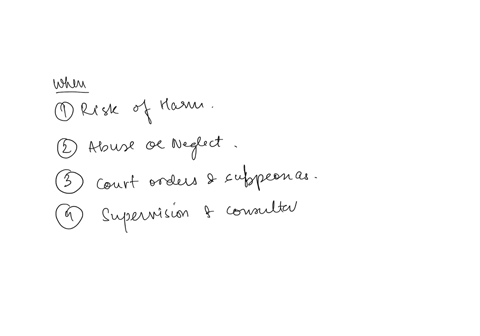 When
① Risk of Harm.
② Abuse or Neglect.
③ Court orders & subpeonas.
④ Supervision & consulta